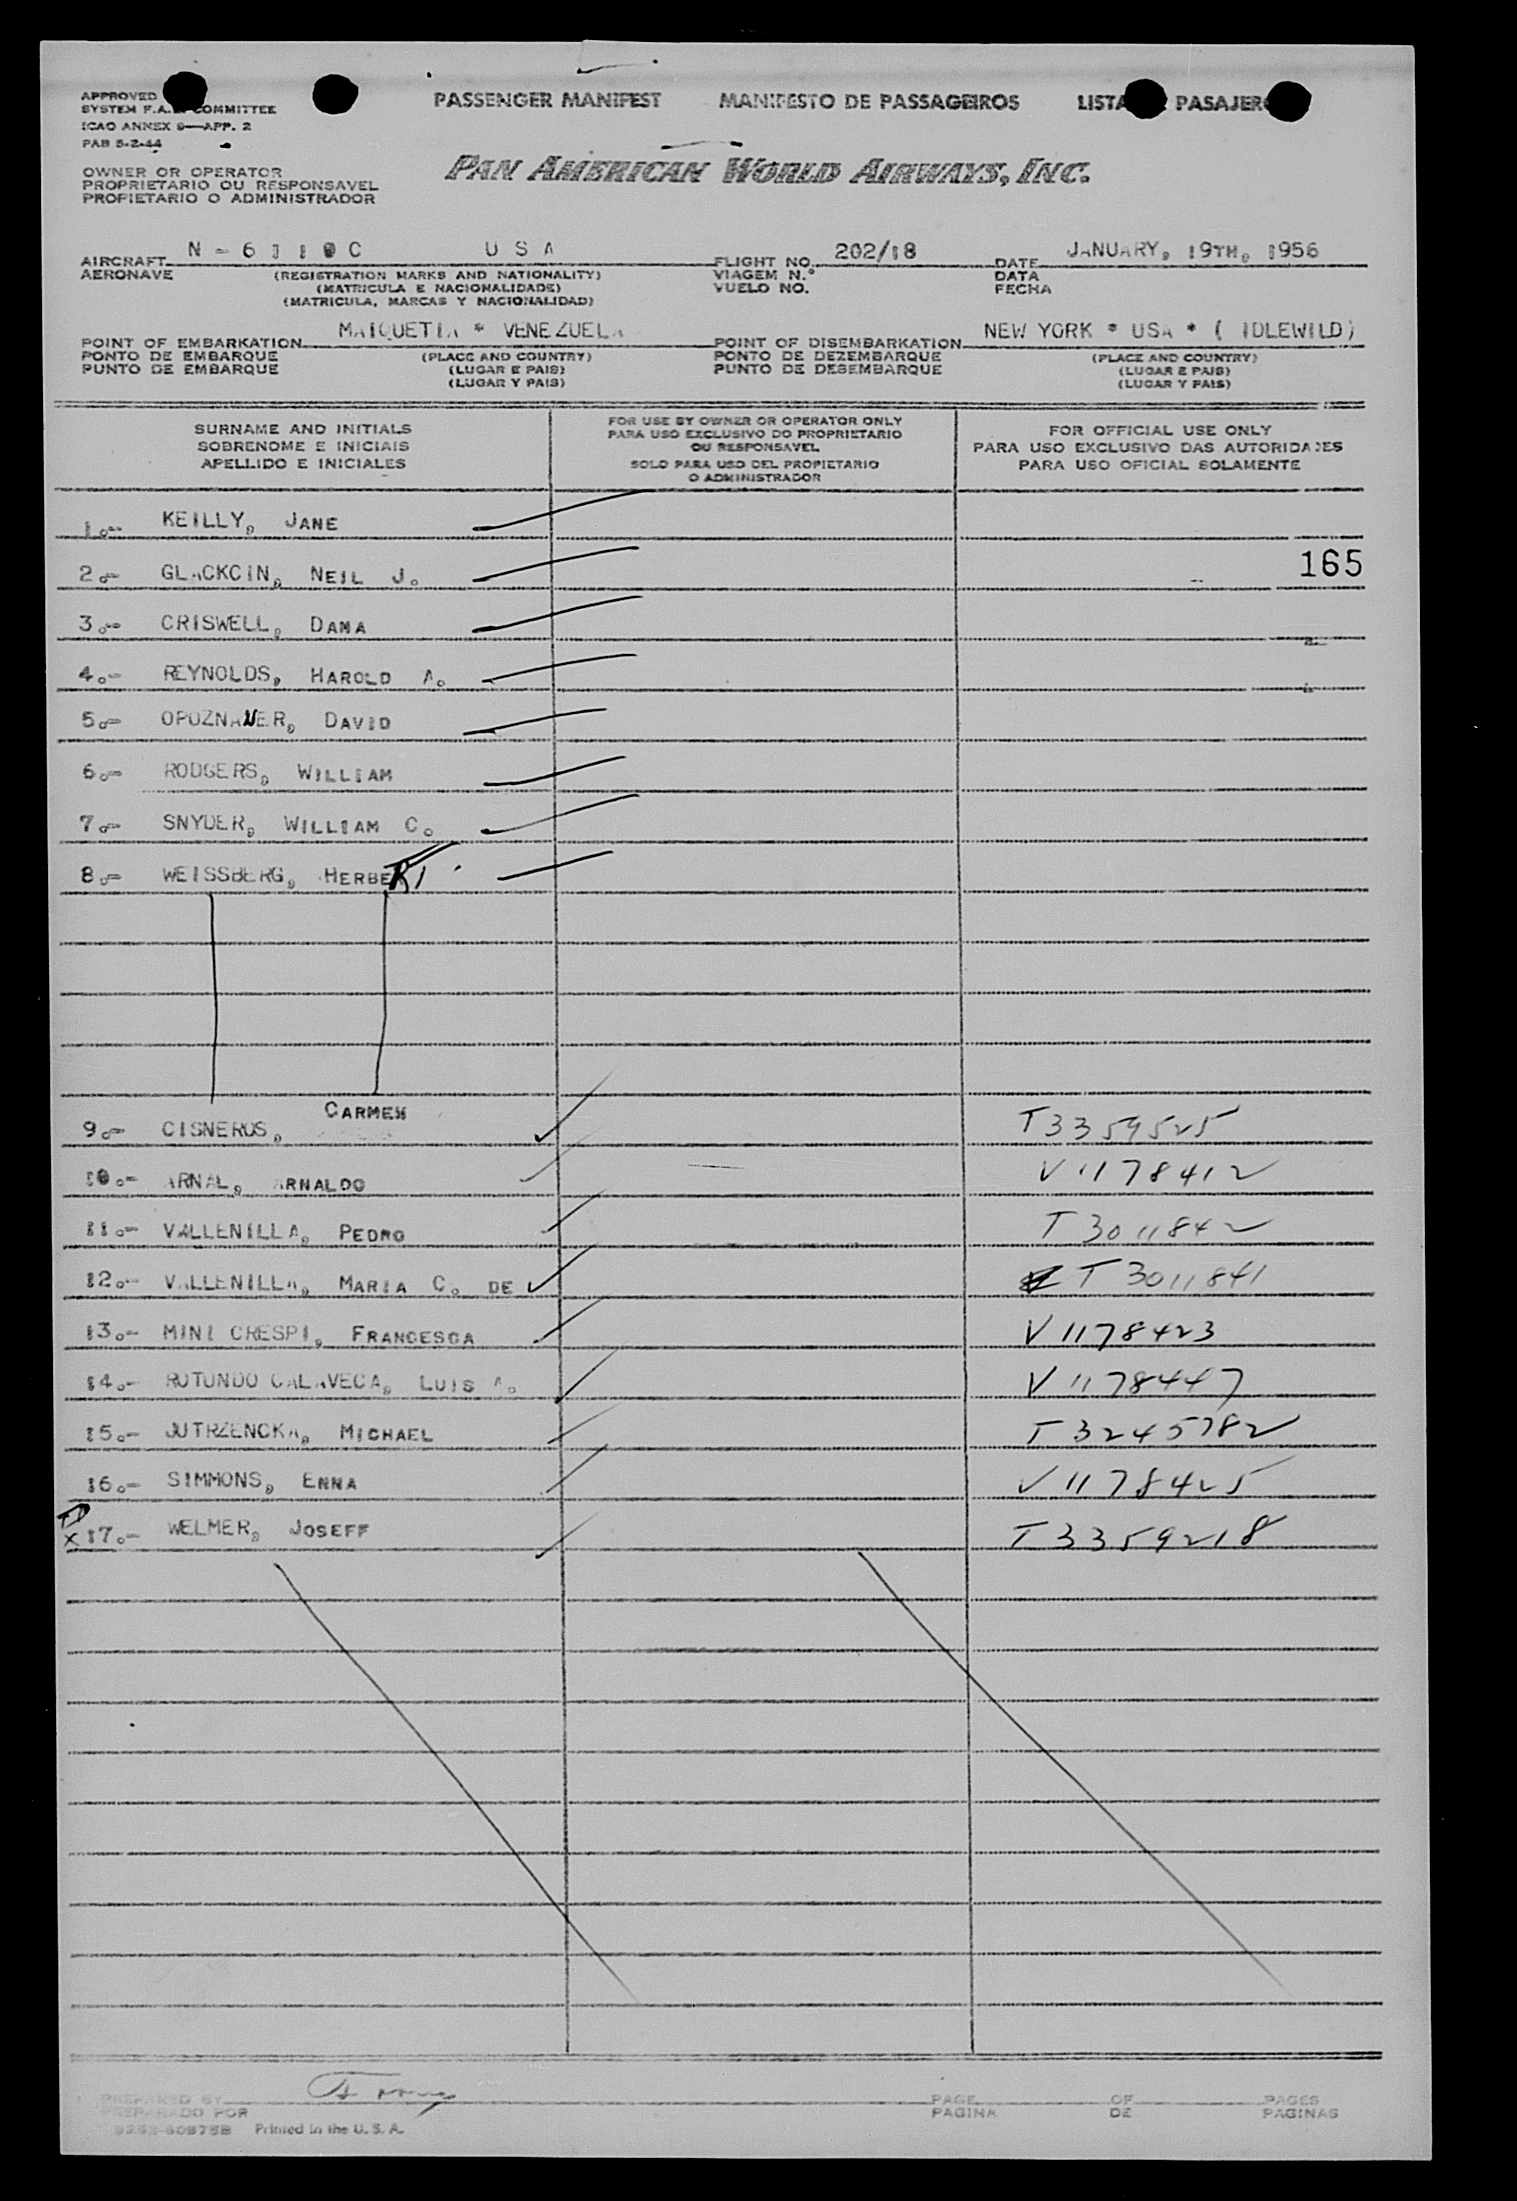 PASSENGER MANIFEST MANIFESTO DE PASSAGEIROS LISTA PASAJER
APPROVED
SYSTEM F.A. COMMITTEE
ICAO ANNEX 9—APP. 2
PAB 5-2-44
PAN AMERICAN WORLD AIRWAYS, INC.
OWNER OR OPERATOR
PROPRIETARIO OU RESPONSAVEL
PROPIETARIO O ADMINISTRADOR
AIRCRAFT USA FLIGHT NO. 202/18 DATE JANUARY, 19TH, 1956
AERONAVE (REGISTRATION MARKS AND NATIONALITY) VIAGEM N.° DATA
(MATRICULA E NACIONALIDADE) VUELO NO. FECHA
(MATRICULA, MARCAS Y NACIONALIDAD)
POINT OF EMBARKATION MAIQUETIA * VENEZUELA POINT OF DISEMBARKATION NEW YORK * USA * ( IDLEWILD)
PONTO DE EMBARQUE (PLACE AND COUNTRY) PONTO DE DEZEMBARQUE (PLACE AND COUNTRY)
PUNTO DE EMBARQUE (LUGAR E PAIS) PUNTO DE DESEMBARQUE (LUGAR E PAIS)
(LUGAR Y PAIS) (LUGAR Y PAIS)
SURNAME AND INITIALS FOR USE BY OWNER OR OPERATOR ONLY FOR OFFICIAL USE ONLY
SOBRENOME E INICIAIS PARA USO EXCLUSIVO DO PROPRIETARIO PARA USO EXCLUSIVO DAS AUTORIDADES
OU RESPONSAVEL
APELLIDO E INICIALES SOLO PARA USO DEL PROPIETARIO PARA USO OFICIAL SOLAMENTE
O ADMINISTRADOR
1.- KEILLY, JANE
2.- GLACKCIN, NEIL J. 165
3.- CRISWELL, DAMA
4.- REYNOLDS, HAROLD A.
5.- OPOZNAUER, DAVID
6.- RODGERS, WILLIAM
7.- SNYDER, WILLIAM C.
8.- WEISSBERG, HERBERT
9.- CISNEROS, CARMEN T3359525
10.- ARNAL, ARNALDO V1178412
11.- VALLENILLA, PEDRO T3011842
12.- VALLENILLA, MARIA C. DE T3011841
13.- MINI CRESPI, FRANCESCA V1178423
14.- ROTUNDO CALAVECA, LUIS A. V1178447
15.- JUTRZENCKA, MICHAEL T3245782
16.- SIMMONS, ENNA V1178425
X 17.- WELMER, JOSEFF T3359218
PREPARED BY PAGE OF PAGES
PREPARADO POR PAGINA DE PAGINAS
Printed in the U. S. A.